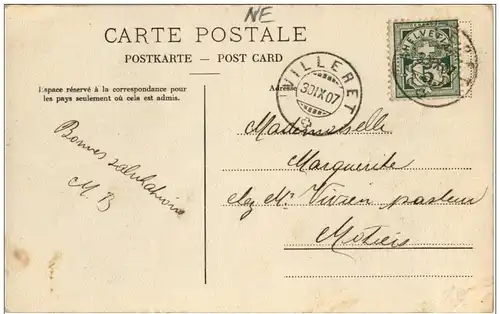 NE
CARTE POSTALE
POSTKARTE — POST CARD
Espace réservé à la correspondance pour
les pays seulement où cela est admis.
Adresse
VILLERET
30.IX.07
HELVETIA
5
Bonnes salutations
M. B
Mademoiselle
Marguerite
chez Mr Vivien pasteur
Motiers